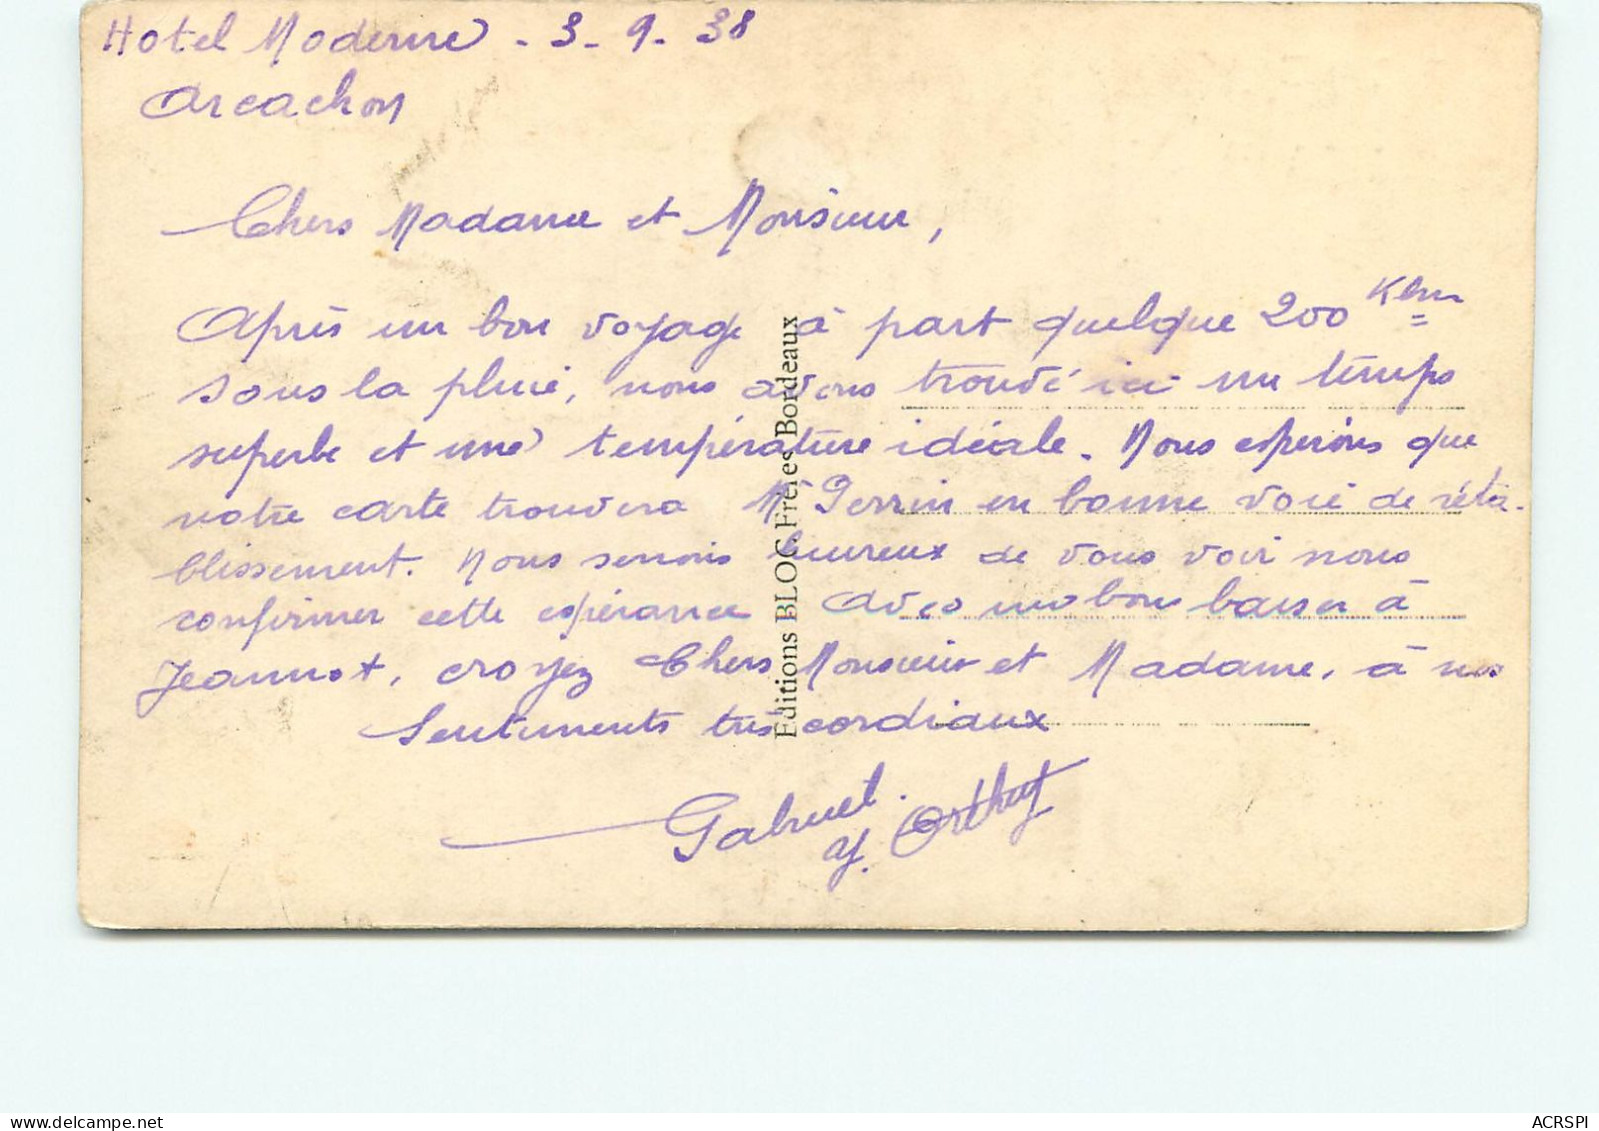 Hotel Moderne - 3 - 9 - 38
Arcachon
Chers Madame et Monsieur,
Après un bon voyage à part quelque 200 Klm
sous la pluie, nous avons trouvé ici un temps
superbe et une température idéale. Nous espérons que
notre carte trouvera Mr Perrin en bonne voie de réta-
blissement. Nous serions heureux de vous voir nous
confirmer cette espérance Avec un bon baiser à
Jeannot, croyez Chers Monsieur et Madame, à nos
Sentiments très cordiaux
Gabriel.
Y.
Editions BLOC Frères Bordeaux
ACRSPI